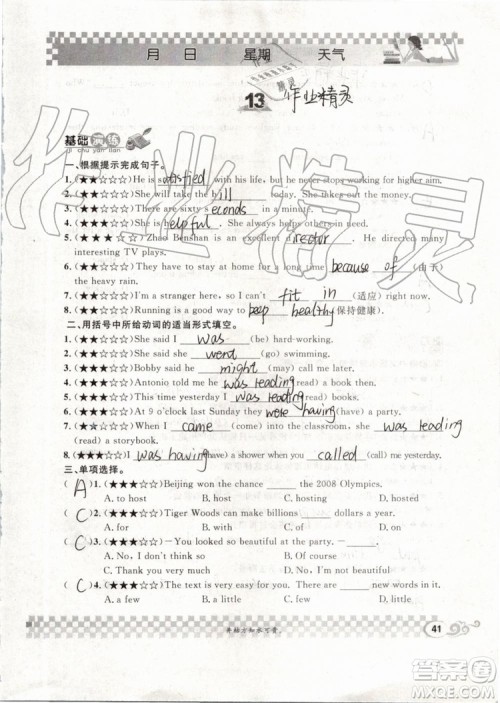 月 日 星期 天气
13 作业精灵
基础演练
ji chu yan lian
一、根据提示完成句子。
1. (★★☆☆☆)He is satisfied with his life, but he never stops working for higher aim.
2. (★★☆☆☆)She will take the bill today. She likes taking the money.
3. (★★☆☆☆)There are sixty seconds in a minute.
4. (★★☆☆☆)She is helpful. She always helps others.
5. (★★☆☆☆)Zhao Benshan is an excellent director. He directed many
interesting TV plays.
6. (★★★☆☆)They had to stay home because of (由于)
the heavy rain.
7. (★★★☆☆)I'm a stranger here, so I can't fit in (适应) right now.
8. (★★★☆☆)Running is a good way to keep healthy (保持健康).
二、用括号中所给动词的适当形式填空。
1. (★★☆☆☆)She said I was (be) hard-working.
2. (★★☆☆☆)She said she went (go) swimming.
3. (★★☆☆☆)Bobby said he might (may) call me.
4. (★★★☆☆)Antonio told me he was reading (read) a book then.
5. (★★★☆☆)This time yesterday I was reading (read) books.
6. (★★★☆☆)At 9 o'clock last Sunday they were having (have) a party.
7. (★★★☆☆)When I came (come) into the classroom, she was reading
(read) a storybook.
8. (★★★☆☆)I was having (have) a shower when you called (call) me yesterday.
三、单项选择。
( A )1. (★★★☆☆)Beijing won the chance ______ the 2008 Olympics.
A. to host B. host C. hosting D. hosts
( C )2. (★★★☆☆)Tiger Woods can make billions ______ dollars a year.
A. for B. to C. of D. off
( C )3. (★★★☆☆)—You looked so beautiful at the party. —______.
A. No, I don't think so B. Of course
C. Thank you very much D. No, I'm not beautiful
( C )4. (★★★☆☆)The text is very easy for you. There are ______ new words in it.
A. a few B. a little C. few D. little
41
答案圈